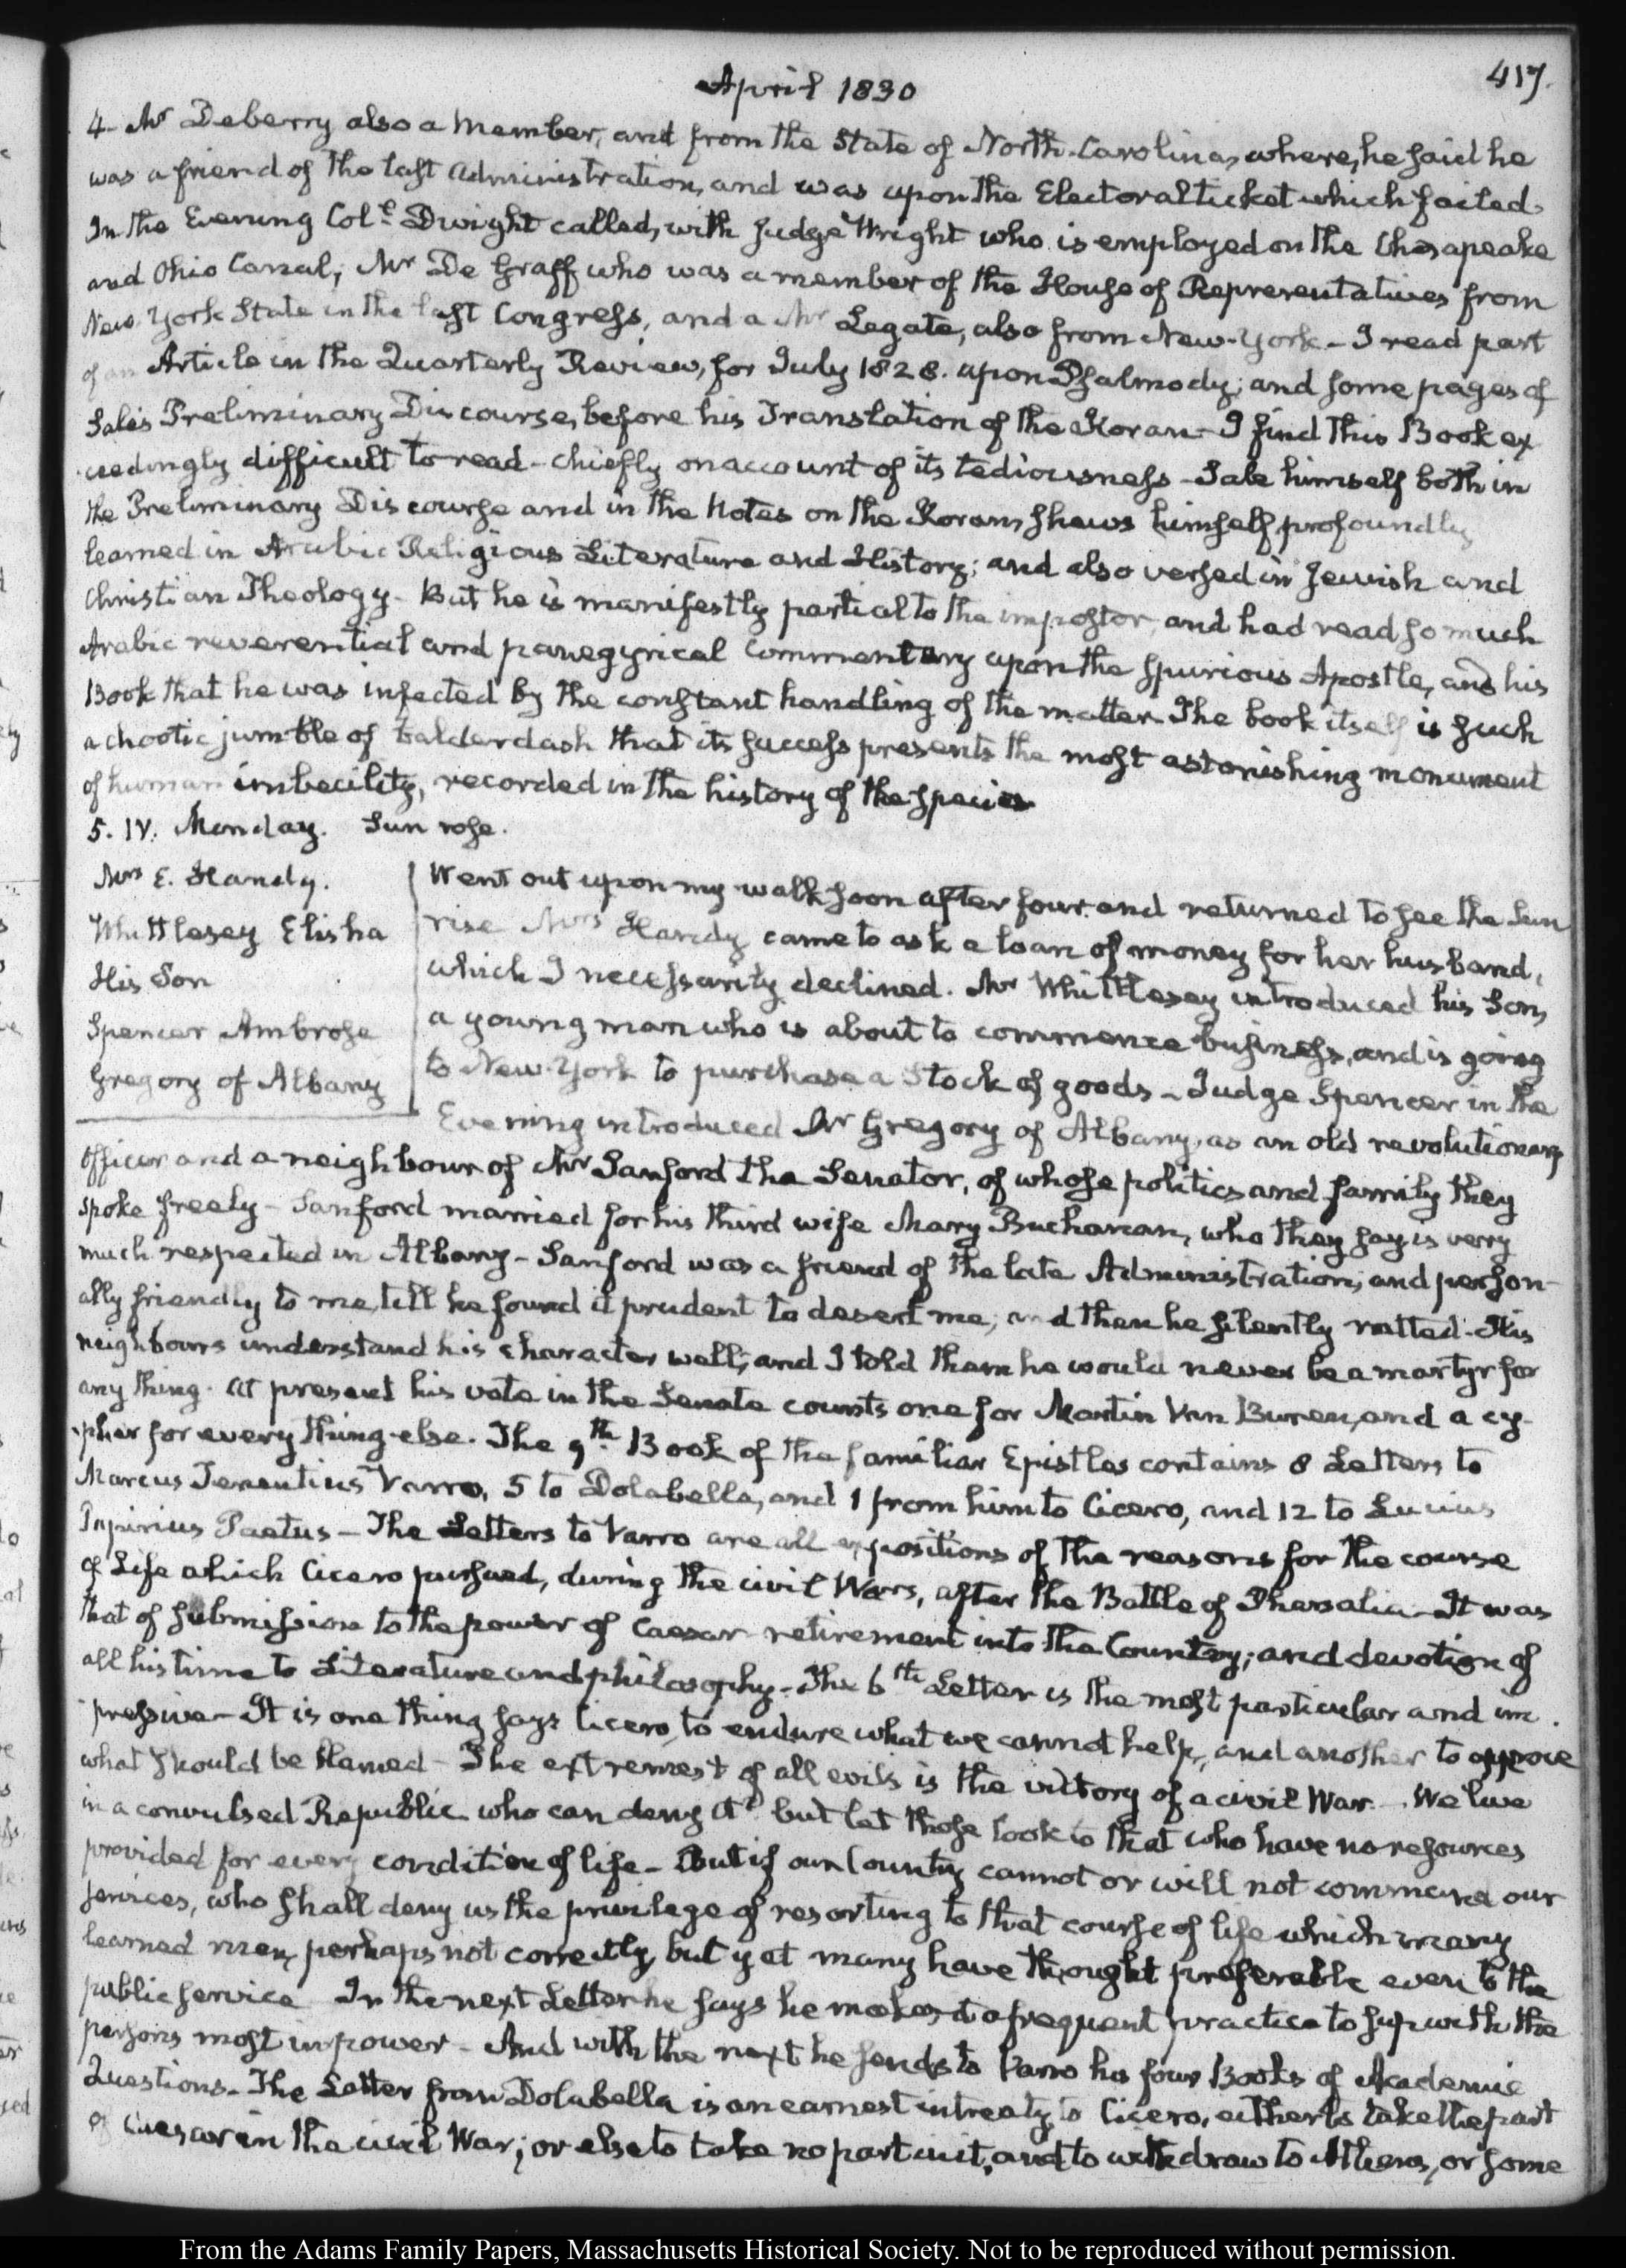 April 1830
417.
4. Mr Deberry also a Member, and from the State of North-Carolina, where, he said he
was a friend of the last Administration, and was upon the Electoral ticket which failed.
In the Evening Coll. Dwight called, with Judge Wright who is employed on the Chesapeake
and Ohio Canal, Mr De Graff who was a member of the House of Representatives from
New York State in the last Congress, and a Mr Legate, also from New-York. I read part
of an Article in the Quarterly Review, for July 1828. upon Psalmody; and some pages of
Sale's Preliminary Discourse, before his Translation of the Koran- I find this Book ex
ceedingly difficult to read- chiefly on account of its tediousness- Sale himself both in
the Preliminary Discourse and in the Notes on the Koran, shews himself profoundly
learned in Arabic Religious Literature and History; and also versed in Jewish and
Christian Theology- But he is manifestly partial to the impostor, and had read so much
Arabic reverential and panegyrical commentary upon the spurious Apostle, and his
Book that he was infected by the constant handling of the matter. The book itself is such
a chaotic jumble of balderdash that its success presents the most astonishing monument
of human imbecility, recorded in the history of the species
5. IV. Monday. Sun rose.
Mrs E. Handy.
Whittlesey Elisha
His Son
Spencer Ambrose
Gregory of Albany
Went out upon my walk soon after four and returned to see the Sun
rise Mrs Handy came to ask a loan of money for her husband,
which I necessarily declined. Mr Whittlesey introduced his Son,
a young man who is about to commence business, and is going
to New-York to purchase a Stock of goods- Judge Spencer in the
Evening introduced Mr Gregory of Albany, as an old revolutionary
Officer and a neighbour of Mr Sanford the Senator, of whose politics and family they
spoke freely- Sanford married for his third wife Mary Buchanan, who they say is very
much respected in Albany- Sanford was a friend of the late Administration, and person-
ally friendly to me, till he found it prudent to desert me; and then he silently ratted. His
neighbours understand his character well; and I told them he would never be a martyr for
any thing. At present his vote in the Senate counts one for Martin Van Buren, and a cy-
pher for every thing else. The 9th Book of the familiar Epistles contains 8 Letters to
Marcus Terentius Varro, 5 to Dolabella, and 1 from him to Cicero, and 12 to Lucius
Papirius Paetus- The Letters to Varro are all expositions of the reasons for the course
of Life which Cicero pursued, during the civil Wars, after the Battle of Pharsalia- It was
that of submission to the power of Caesar- retirement into the Country; and devotion of
all his time to Literature and philosophy- The 6th Letter is the most particular and im
pressive- It is one thing says Cicero, to endure what we cannot help, and another to approve
what should be blamed- The extremest of all evils is the victory of a civil War- We live
in a convulsed Republic who can deny it? but let those look to that who have no resources
provided for every condition of life- But if our Country cannot or will not command our
services, who shall deny us the privilege of resorting to that course of life which many
learned men, perhaps not correctly, but yet many have thought preferable even to the
public service In the next Letter he says he makes it a frequent practice to sup with the
persons most in power- And with the next he sends to Varro his four Books of Academic
Questions- The Letter from Dolabella is an earnest intreaty to Cicero, either to take the part
of Caesar in the civil War; or else to take no part in it, and to withdraw to Athens, or some
From the Adams Family Papers, Massachusetts Historical Society. Not to be reproduced without permission.